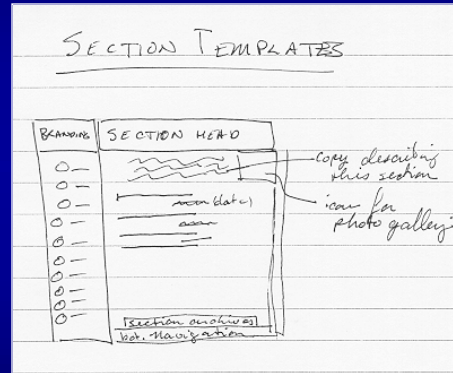 SECTION TEMPLATES
BRANDING
SECTION HEAD
copy describing
this section
(date)
icon for
photo gallery
section archives
bot. Navigation